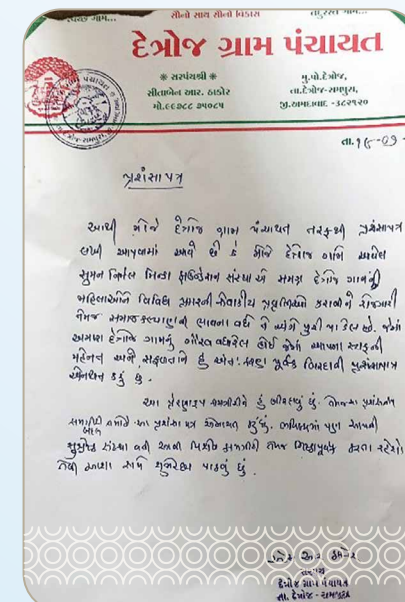 સ્વચ્છ ગામ... સૌનો સાથ સૌનો વિકાસ તંદુરસ્ત ગામ...
દેત્રોજ ગ્રામ પંચાયત
સરપંચશ્રી
સીતાબેન આર. ઠાકોર
મો.૯૯૭૮૮ ૨૫૦૮૫
મુ.પો.દેત્રોજ,
તા.દેત્રોજ-રામપુરા,
જી.અમદાવાદ -૩૮૨૧૨૦
તા.
પ્રશંસાપત્ર
આથી મોજે દેત્રોજ ગ્રામ પંચાયત તરફથી પ્રશંસાપત્ર
લખી આપવામાં આવે છે કે મોજે દેત્રોજ ગામે આવેલ
સુમન નિર્મલ મિન્ડા ફાઉન્ડેશન સંસ્થા એ સમગ્ર દેત્રોજ ગામની
મહિલાઓને વિવિધ પ્રકારની પ્રવૃત્તિઓ કરાવીને રોજગારી
તેમજ સમાજ કલ્યાણની ભાવના
દેત્રોજ ગામનું ગૌરવ વધારેલ હોઈ આપના સ્ટાફની
મહેનત અને સફળતાને હું પૂર્વક બિરદાવી પ્રશંસાપત્ર
એનાયત કરું છું.
આ કામગીરીને હું બીરદાવું છું.
આ પ્રશંસા પત્ર એનાયત કરું છું. ભવિષ્યમાં પણ આપની
સંસ્થા વતી આવી કામગીરી તેમજ નિષ્ઠાપૂર્વક કરતા રહેશો
તેવી આશા સાથે શુભેચ્છા પાઠવું છું.
સરપંચ
દેત્રોજ ગ્રામ પંચાયત
તા. દેત્રોજ - રામપુરા